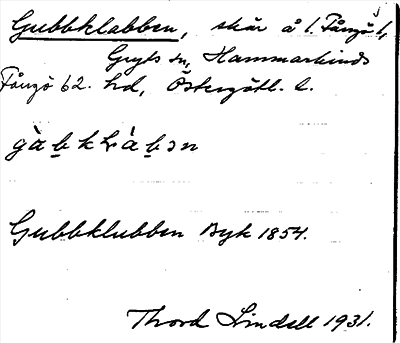 Gubbklabben, skär å l. Fångö f,
Gryts sn, Hammarkinds
Fångö 62. hd, Östergötl. l.
Gubbklubben Byk 1854.
Thord Lindell 1931.